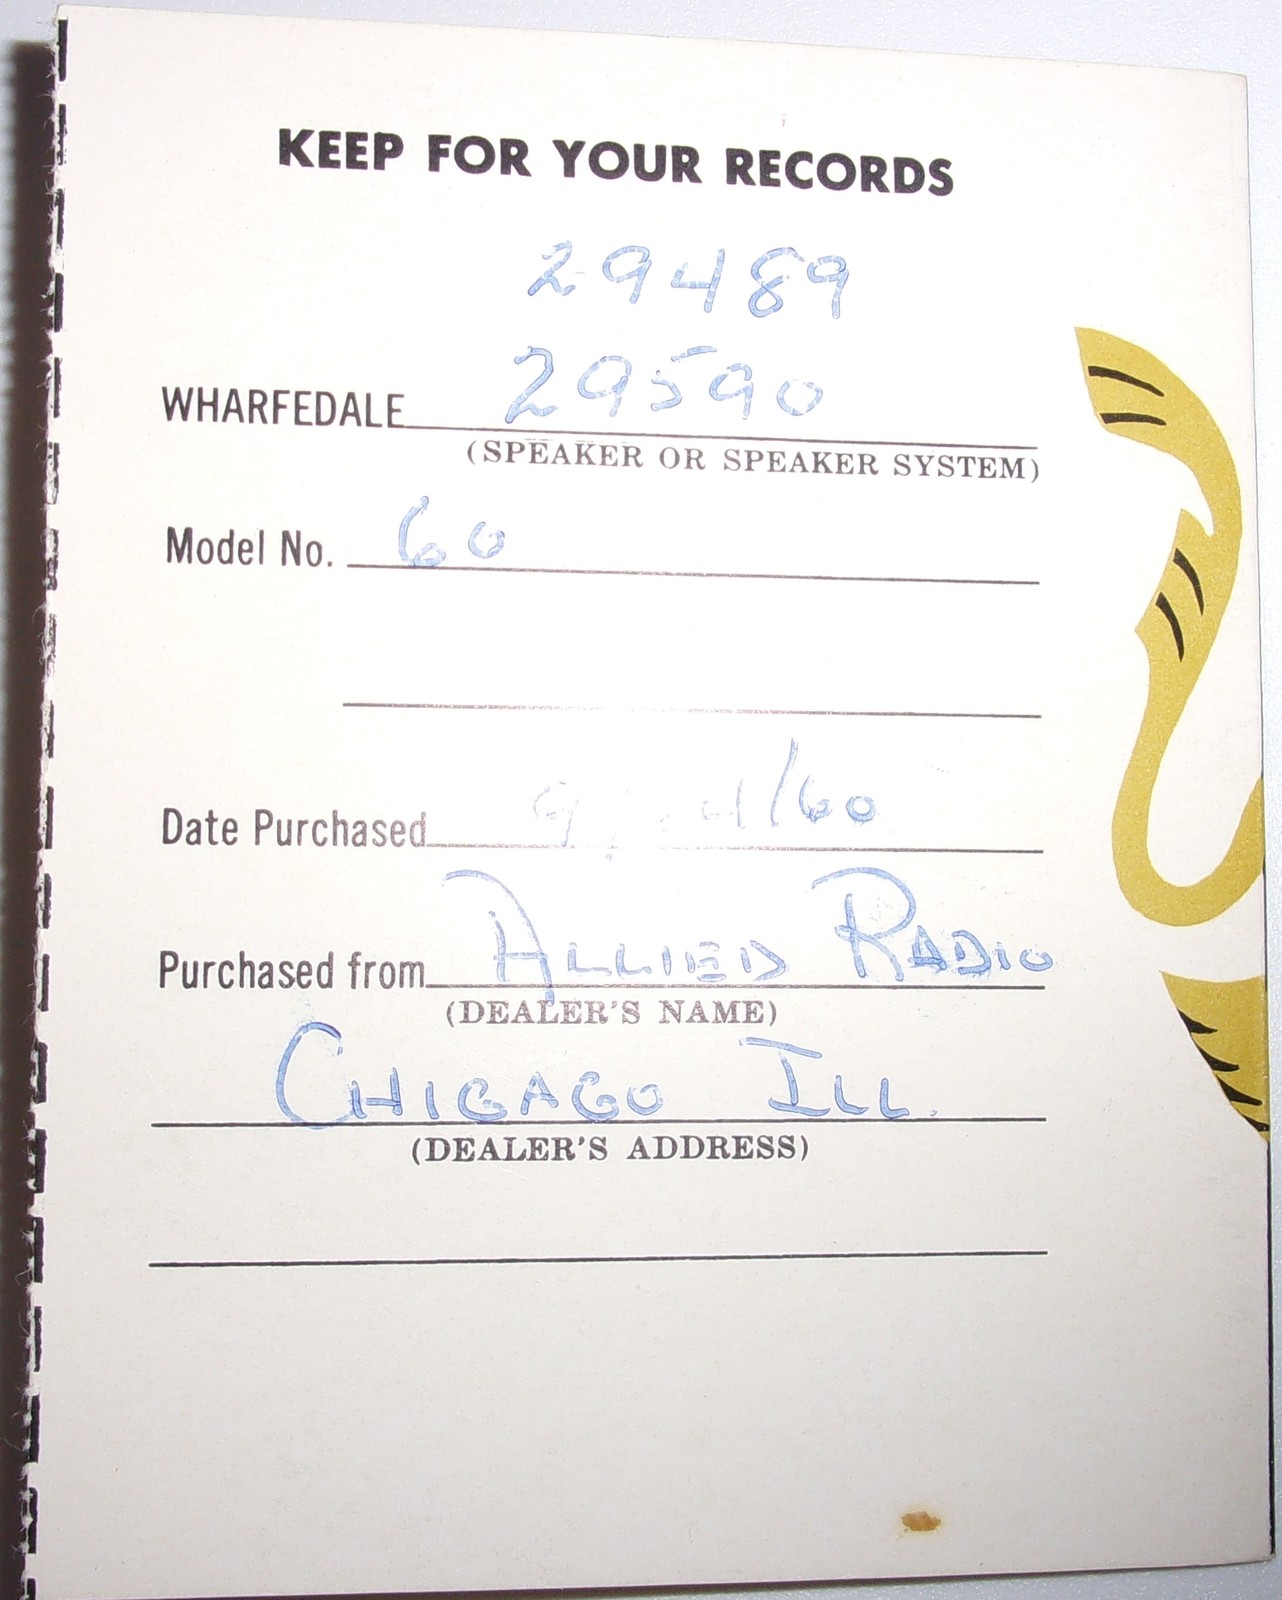 KEEP FOR YOUR RECORDS
29489
WHARFEDALE 29590
(SPEAKER OR SPEAKER SYSTEM)
Model No. 60
Date Purchased /60
Purchased from ALLIED RADIO
(DEALER'S NAME)
CHICAGO ILL.
(DEALER'S ADDRESS)